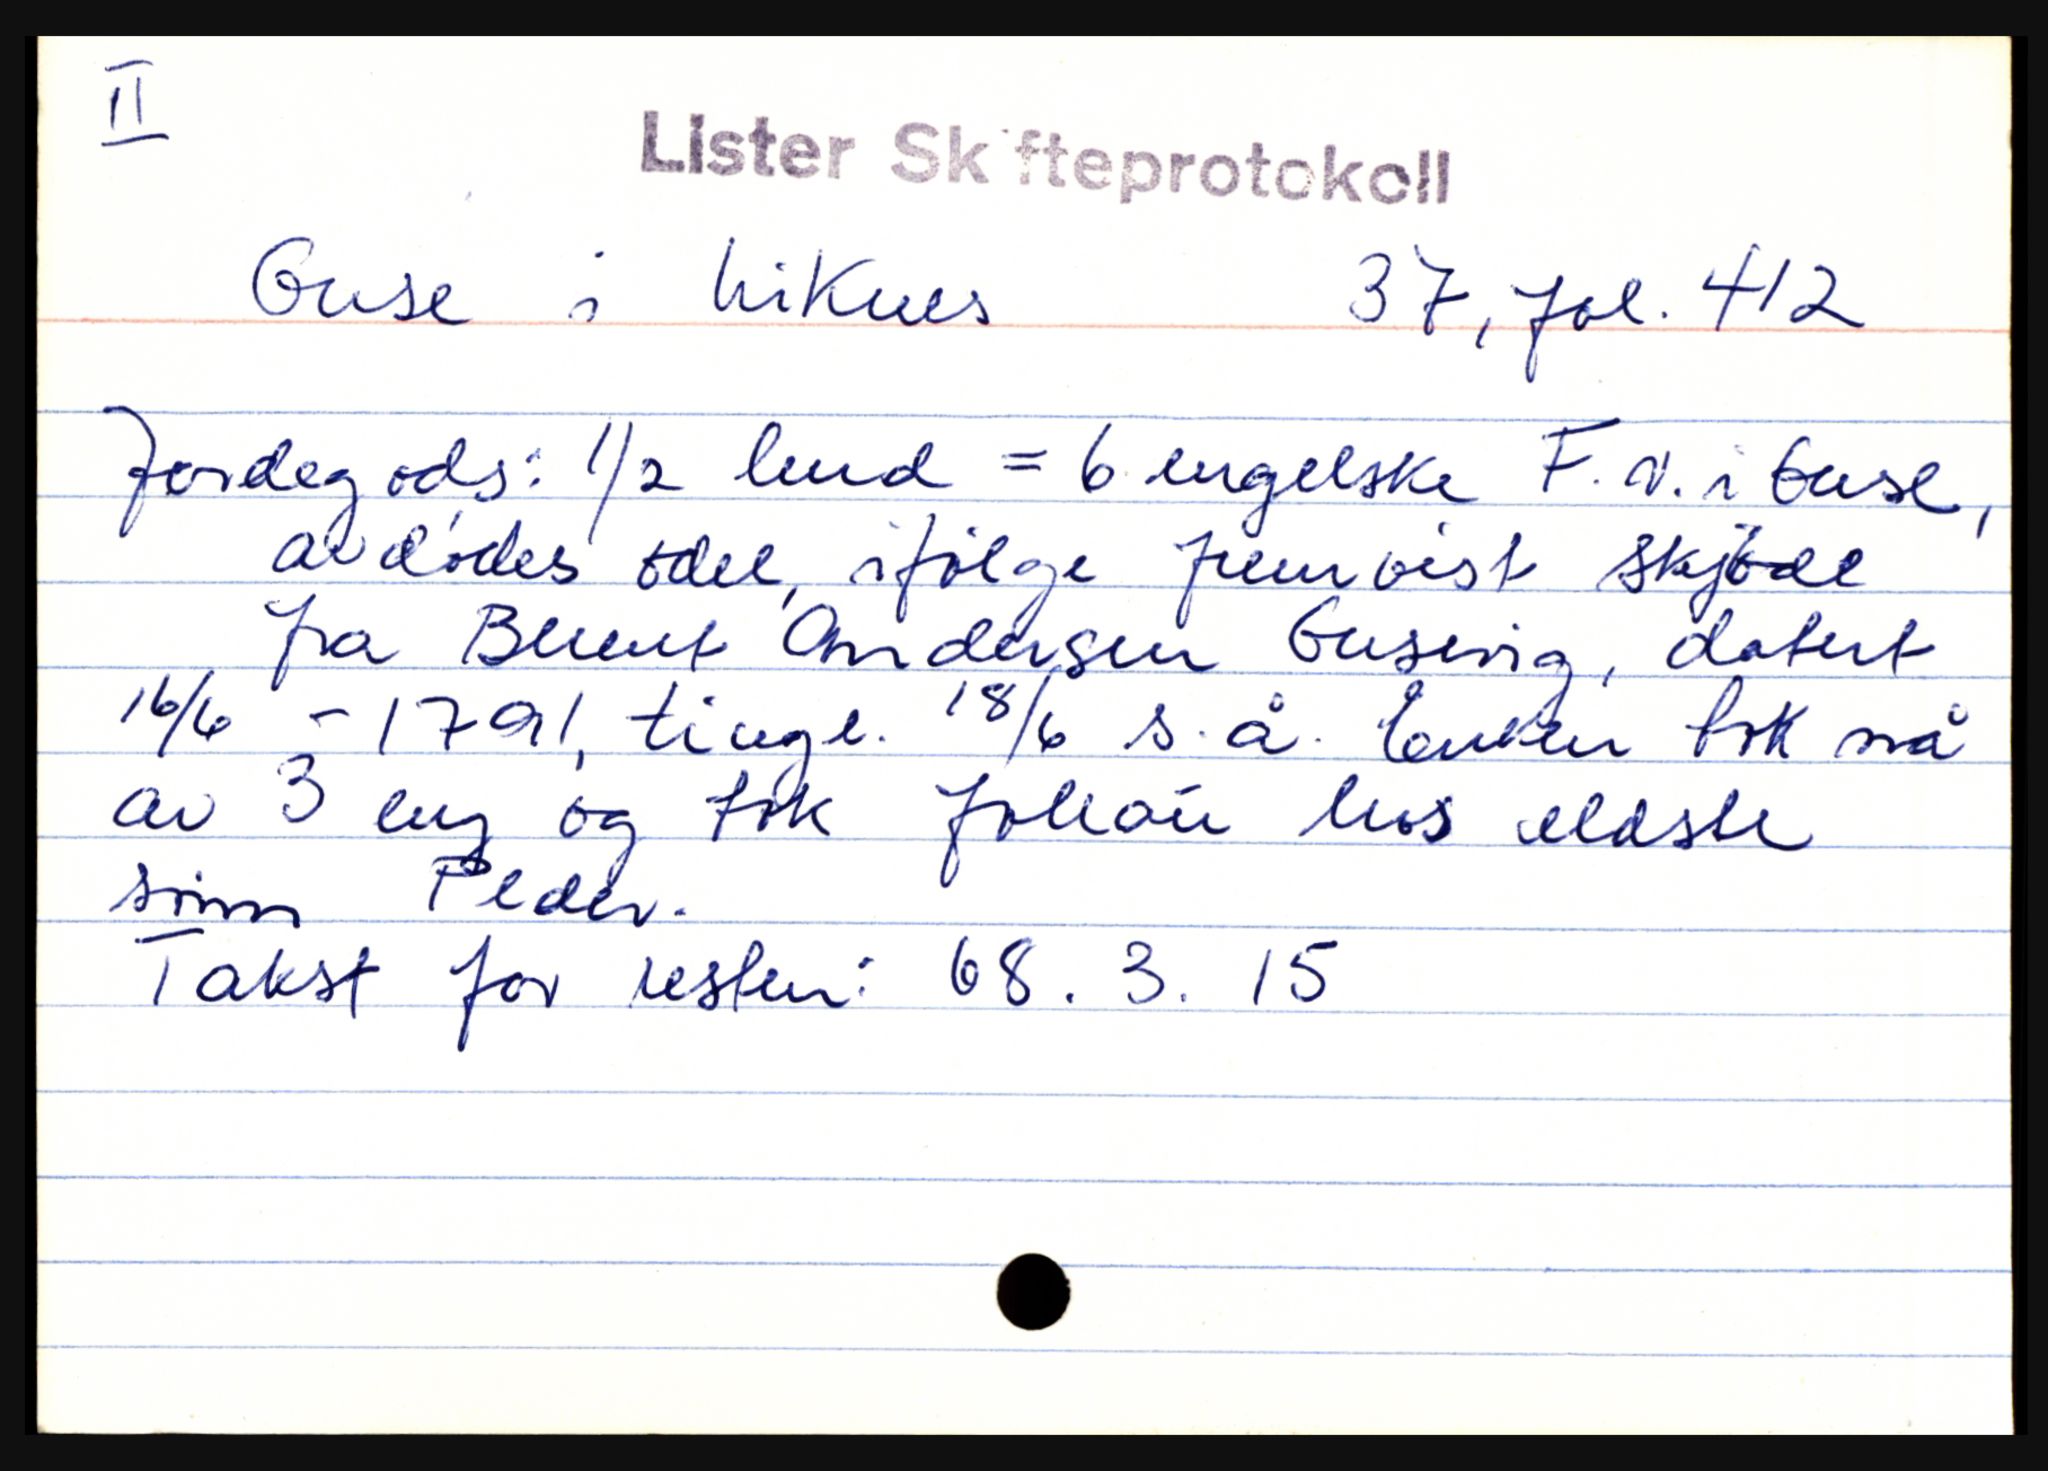 II
Lister Skifteprotokoll
Guse i Liknes 37, fol. 412
Jordegods: 1/2 hud = 6 engelske F. v. i Guse,
avdödes odel, ifölge fremvist skjöde
fra Berent Andersen Gusevig, datert
16/6 - 1791, tingl. 18/6 s. å. Enken fikk rå
av 3 eng og fikk folkau hos eldste
sönn Peder.
Takst for resten: 68. 3. 15